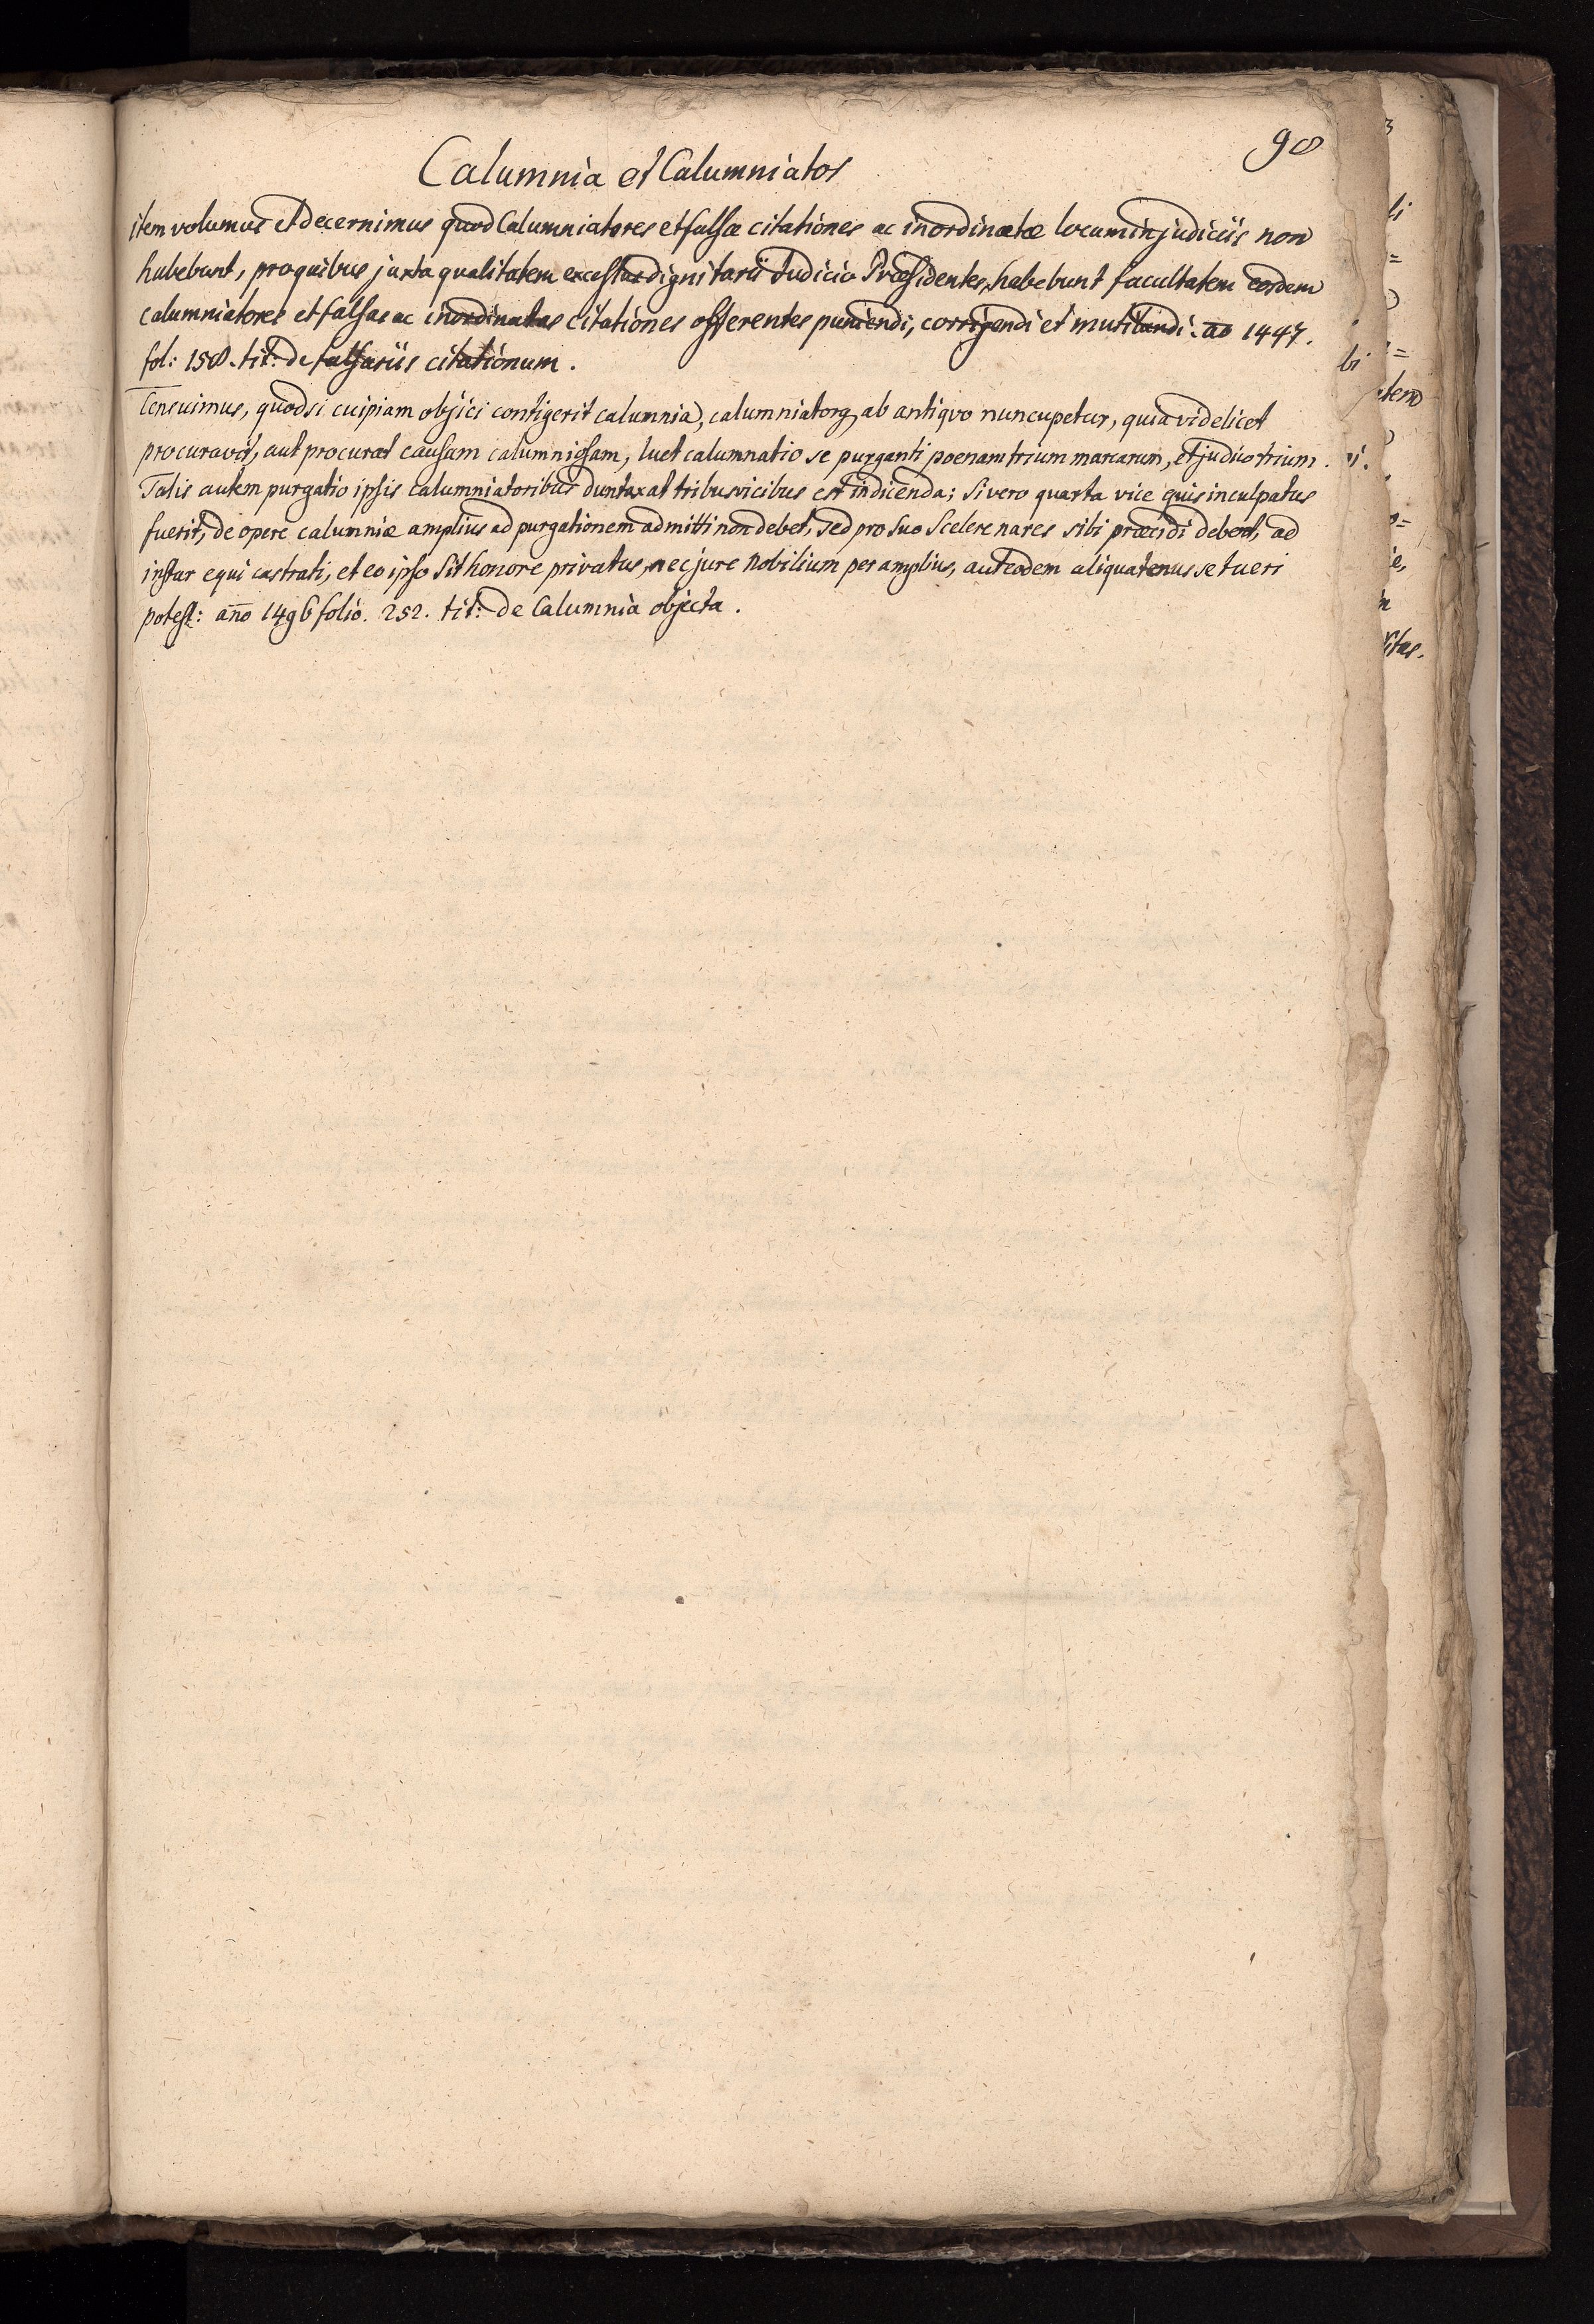 98
Calumnia et Calumniator
item volumus et decernimus quod Calumniatores et falsæ citationes ac inordinatæ locum in judiciis non
habebunt, pro quibus juxta qualitatem excessus dignitarii Judicio Præsidentes, habebunt facultatem eosdem
calumniatores et falsas ac inordinatas citationes offerentes puniendi, corrigendi et mutilandi. ao 1447.
fol: 158. tit: de falsariis citationum.
Censuimus, quod si cuipiam objici contigerit calumnia, calumniatorq ab antiqvo nuncupetur, quia videlicet
procuravit, aut procurat causam calumniosam, luet calumnatio se purganti poenam trium marcarum, et judicio trium.
Talis autem purgatio ipsis calumniatoribus duntaxat tribus vicibus est indicenda; Si vero quarta vice quis inculpatus
fuerit, de opere calumniæ amplius ad purgationem admitti non debet, sed pro suo Scelere nares sibi præcidi debent, ad
instar equi castrati, et eo ipso Sit honore privatus, nec jure Nobilium per amplius, aut eodem aliquatenus se tueri
potest: año 1496 folio. 252. tit: de Calumnia objecta.